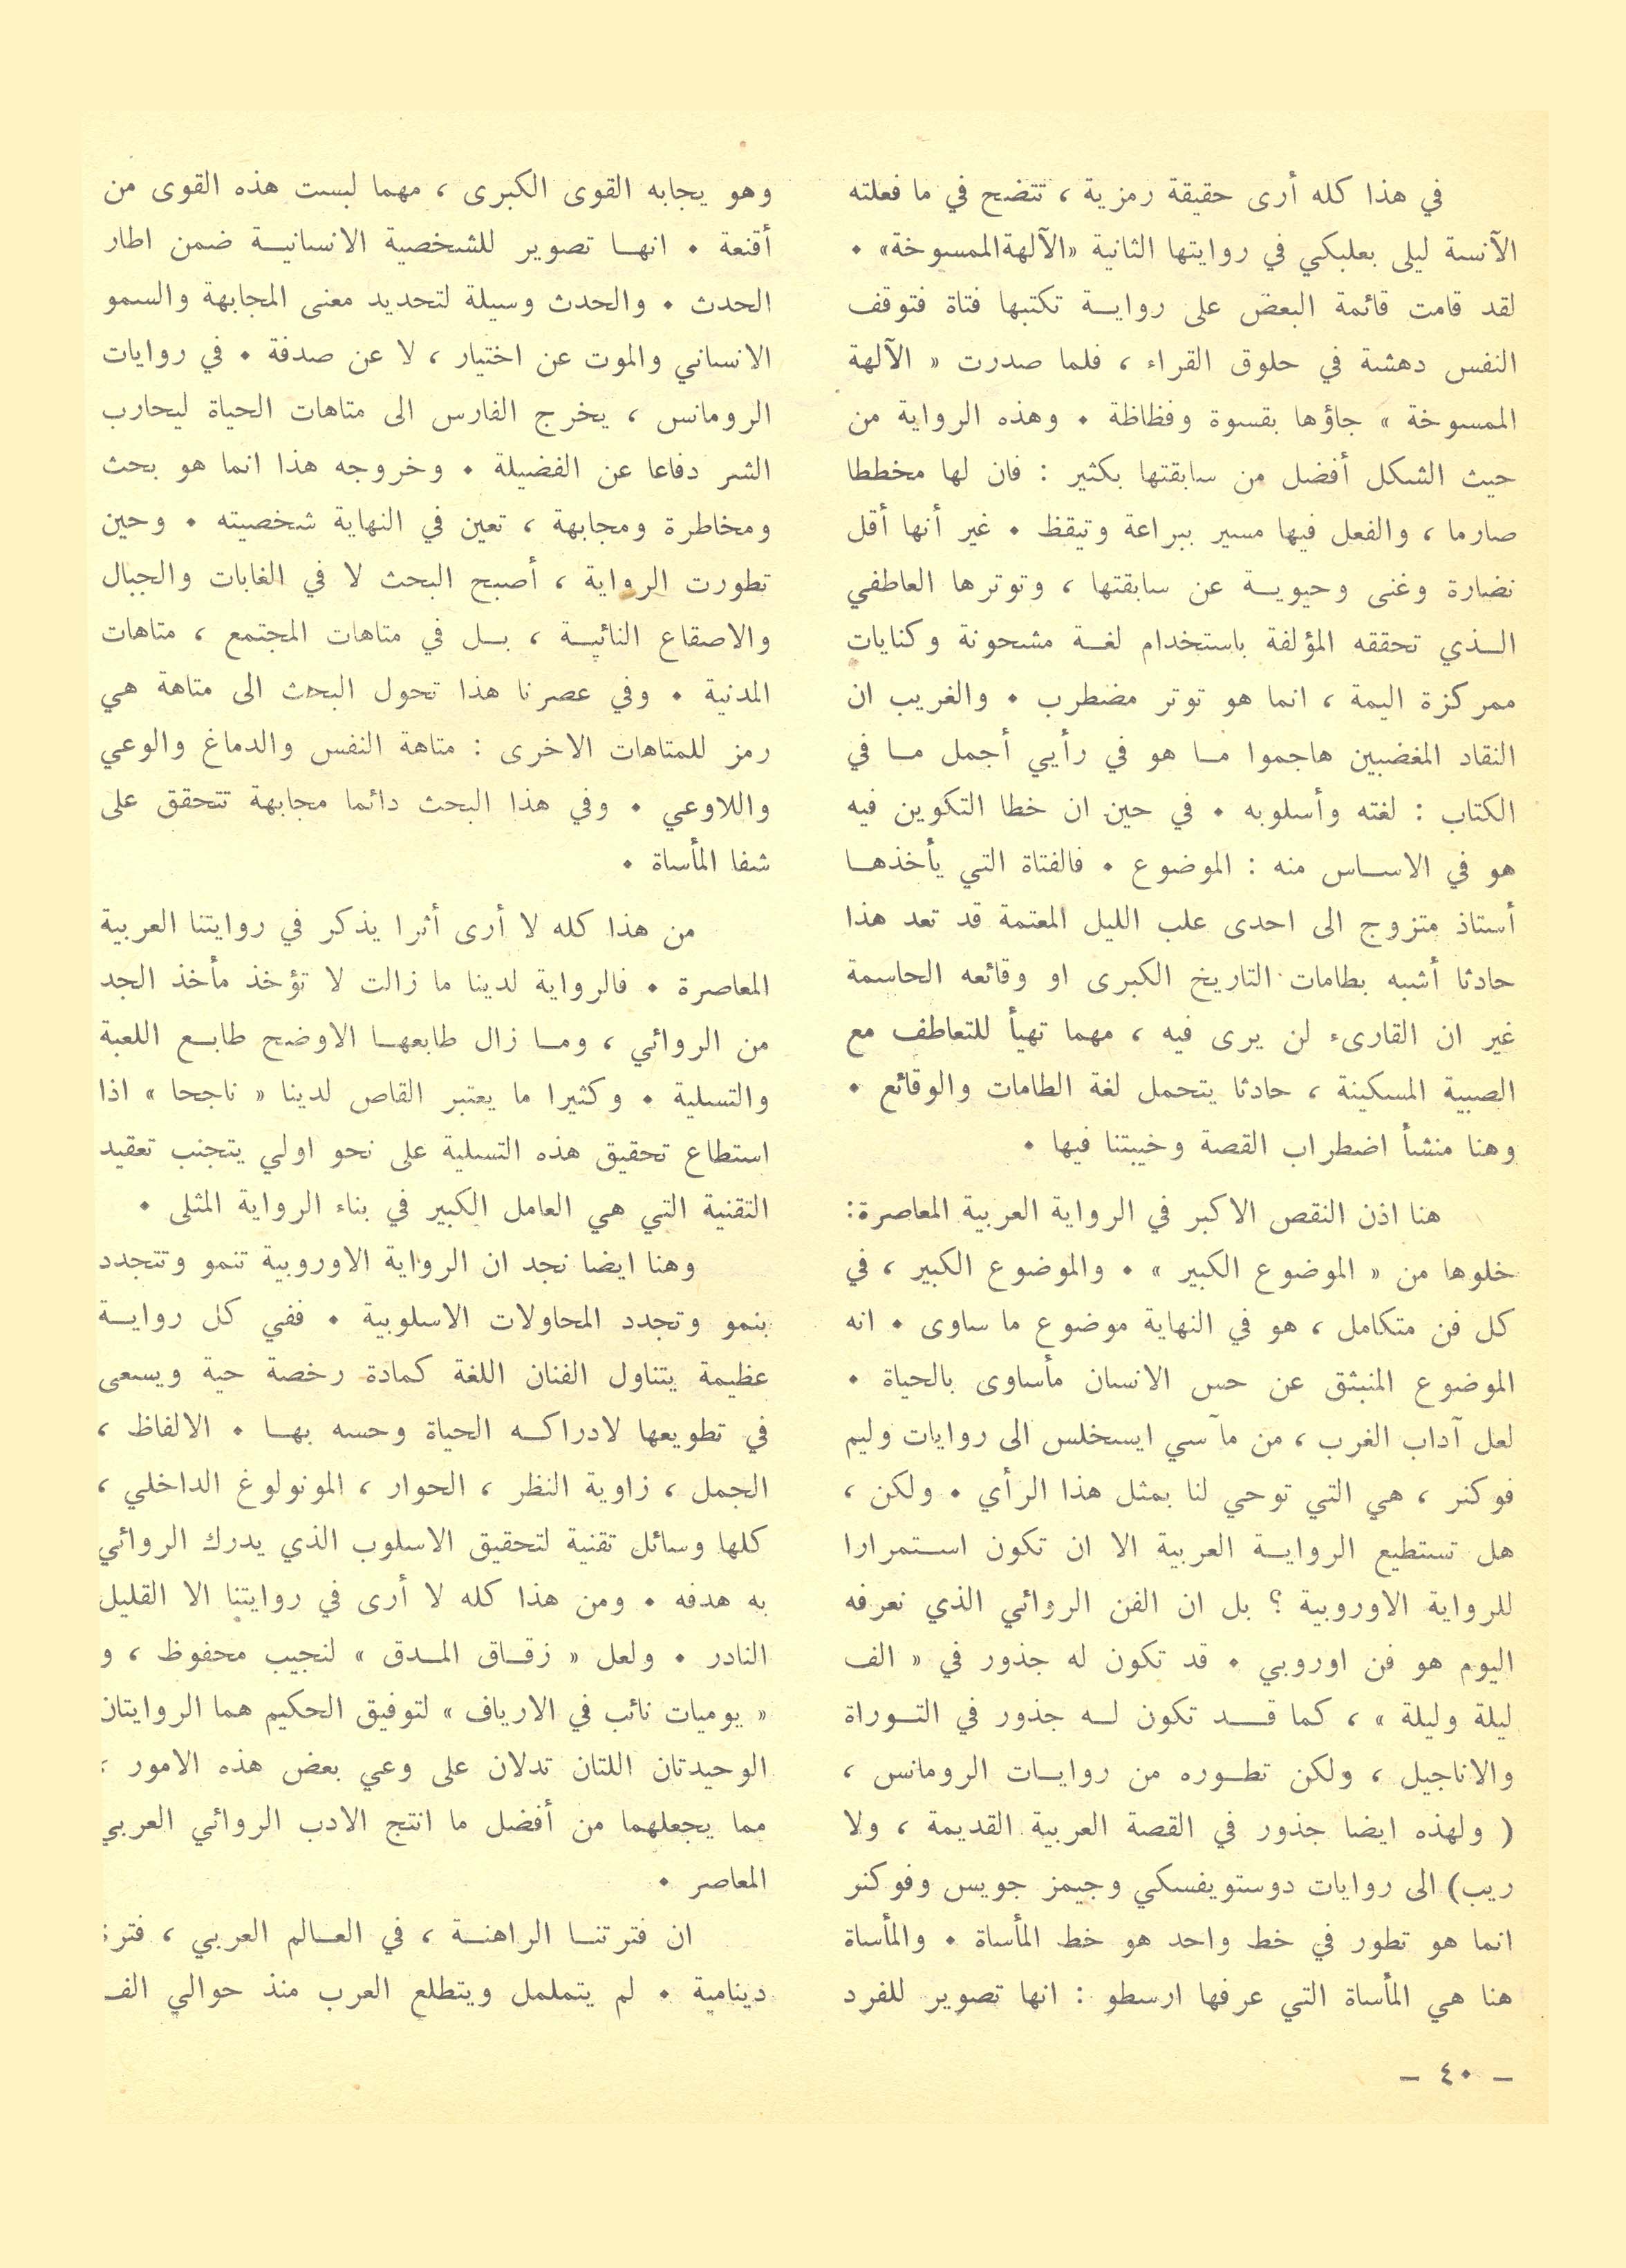 في هذا كله أرى حقيقة رمزية ، تتضح في ما فعلته
الآنسة ليلى بعلبكي في روايتها الثانية «الآلهةالممسوخة» ٠
لقد قامت قائمة البعض على روايـة تكتبها فتاة فتوقف
النفس دهشة في حلوق القراء ، فلما صدرت « الآلهة
الممسوخة » جاؤها بقسوة وفظاظة ٠ وهذه الرواية من
حيث الشكل أفضل من سابقتها بكثير : فان لها مخططا
صارما ، والفعل فيها مسير ببراعة وتيقظ ٠ غير أنها أقل
نضارة وغنى وحيويـة عن سابقتها ، وتوترها العاطفي
الـذي تحققه المؤلفة باستخدام لغـة مشحونة وكنايات
ممركزة اليمة ، انما هو توتر مضطرب ٠ والغريب ان
النقاد المغضبين هاجموا مـا هو في رأيي أجمل مـا في
الكتاب : لغته وأسلوبه ٠ في حين ان خطا التكوين فيه
هو في الاسـاس منه : الموضوع ٠ فالفتاة التي يأخذهـا
أستاذ متزوج الى احدى علب الليل المعتمة قد تعد هذا
حادثا أشبه بطامات التاريخ الكبرى او وقائعه الحاسمة
غير ان القارىء لن يرى فيه ، مهما تهيأ للتعاطف مع
الصبية المسكينة ، حادثا يتحمل لغة الطامات والوقائع ٠
وهنا منشأ اضطراب القصة وخيبتنا فيها ٠
هنا اذن النقص الاكبر في الرواية العربية المعاصرة:
خلوها من « الموضوع الكبير » ٠ والموضوع الكبير ، في
كل فن متكامل ، هو في النهاية موضوع ما ساوى ٠ انه
الموضوع المنبثق عن حس الانسان مأساوى بالحياة ٠
لعل آداب الغرب ، من مآسي ايسخلس الى روايات وليم
فوكنر ، هي التي توحي لنا بمثل هذا الرأي ٠ ولكن ،
هل تستطيع الروايـة العربية الا ان تكون استـمرارا
للرواية الاوروبية ؟ بل ان الفن الروائي الذي نعرفه
اليوم هو فن اوروبي ٠ قد تكون له جذور في « الف
ليلة وليلة » ، كما قـد تكون لـه جذور في التـوراة
والاناجيل ، ولكن تطـوره من روايـات الرومانس ،
( ولهذه ايضا جذور في القصة العربية القديمة ، ولا
ريب) الى روايات دوستويفسكي وجيمز جويس وفوكنر
انما هو تطور في خط واحد هو خط المأساة ٠ والمأساة
هنا هي المأساة التي عرفها ارسطو : انها تصوير للفرد
وهو يجابه القوى الكبرى ، مهما لبست هذه القوى من
أقنعة ٠ انهـا تصوير للشخصية الانسانيـة ضمن اطار
الحدث ٠ والحدث وسيلة لتحديد معنى المجابهة والسمو
الانساني والموت عن اختيار ، لا عن صدفة ٠ في روايات
الرومانس ، يخرج الفارس الى متاهات الحياة ليحارب
الشر دفاعا عن الفضيلة ٠ وخروجه هذا انما هو بحث
ومخاطرة ومجابهة ، تعين في النهاية شخصيته ٠ وحين
تطورت الرواية ، أصبح البحث لا في الغابات والجبال
والاصقاع النائيـة ، بـل في متاهات المجتمع ، متاهات
المدنية ٠ وفي عصرنا هذا تحول البحث الى متاهة هي
رمز للمتاهات الاخرى : متاهة النفس والدماغ والوعي
واللاوعي ٠ وفي هذا البحث دائما مجابهة تتحقق على
شفا المأساة ٠
من هذا كله لا أرى أثرا يذكر في روايتنا العربية
المعاصرة ٠ فالرواية لدينا ما زالت لا تؤخذ مأخذ الجد
من الروائي ، ومـا زال طابعهـا الاوضح طابـع اللعبة
والتسلية ٠ وكثيرا ما يعتبر القاص لدينا « ناجحا » اذا
استطاع تحقيق هذه التسلية على نحو اولي يتجنب تعقيد
التقنية التي هي العامل الكبير في بناء الرواية المثلى ٠
وهنا ايضا نجد ان الرواية الاوروبية تنمو وتتجدد
بنمو وتجدد المحاولات الاسلوبية ٠ ففي كل روايـة
عظيمة يتناول الفنان اللغة كمادة رخصة حية ويسعى
في تطويعها لادراكـه الحياة وحسه بهـا ٠ الالفاظ ،
الجمل ، زاوية النظر ، الحوار ، المونولوغ الداخلي ،
كلها وسائل تقنية لتحقيق الاسلوب الذي يدرك الروائي
به هدفه ٠ ومن هذا كله لا أرى في روايتنا الا القليل
النادر ٠ ولعل « زقـاق المـدق » لنجيب محفوظ ، و
« يوميات نائب في الارياف » لتوفيق الحكيم هما الروايتان
الوحيدتان اللتان تدلان على وعي بعض هذه الامور ،
مما يجعلهما من أفضل ما انتج الادب الروائي العربي
المعاصر ٠
ان فترتنـا الراهنـة ، في العـالم العربي ، فترة
دينامية ٠ لم يتململ ويتطلع العرب منذ حوالي الف
– ٤٠ –